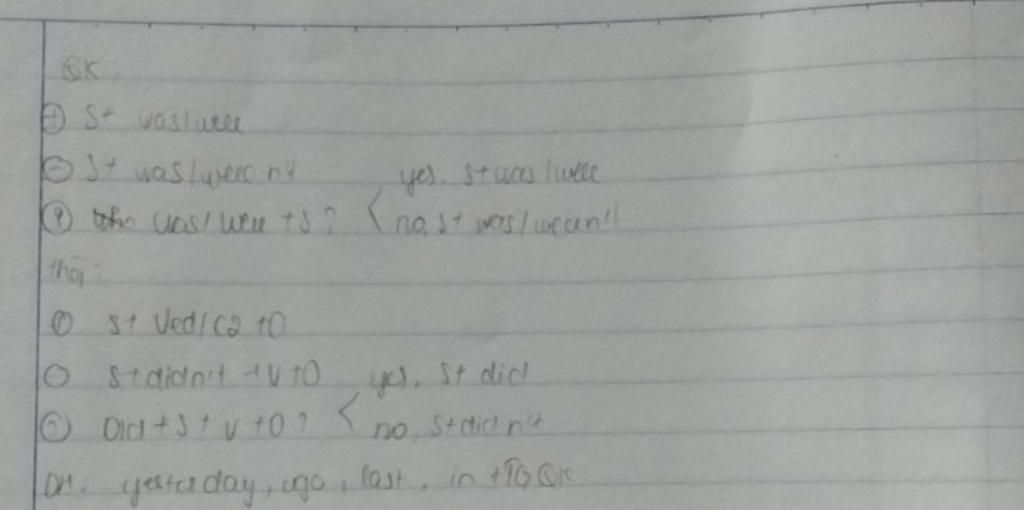 QK:
(+) S+ was/were
(-) S+ was/were n't yes, S+ was/were
(?) was/were +S? < no, S+ was/weren't
thg:
(+) S+ Ved/C2 +O
(-) S+ didn't +V+O yes, S+ did
(?) Did+S+V+O? < no, S+didn't
DH: yesterday, ago, last, in +TGQK